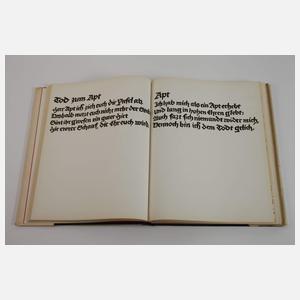 Tod zum Apt
Herr Apt ich zieh euch die Ynfel ab
Deshalb nutzt euch nicht mehr der Stab
Sint ihr gwesen ein guter Hirt
Hie ewrer Schauf, die Ehr euch wird.
Apt
Ich hab mich als ein Apt erhebt
Und lang in hohen Ehren glebt:
Auch satzt sich niemandt wider mich,
Dennoch bin ich dem Todt gleich.